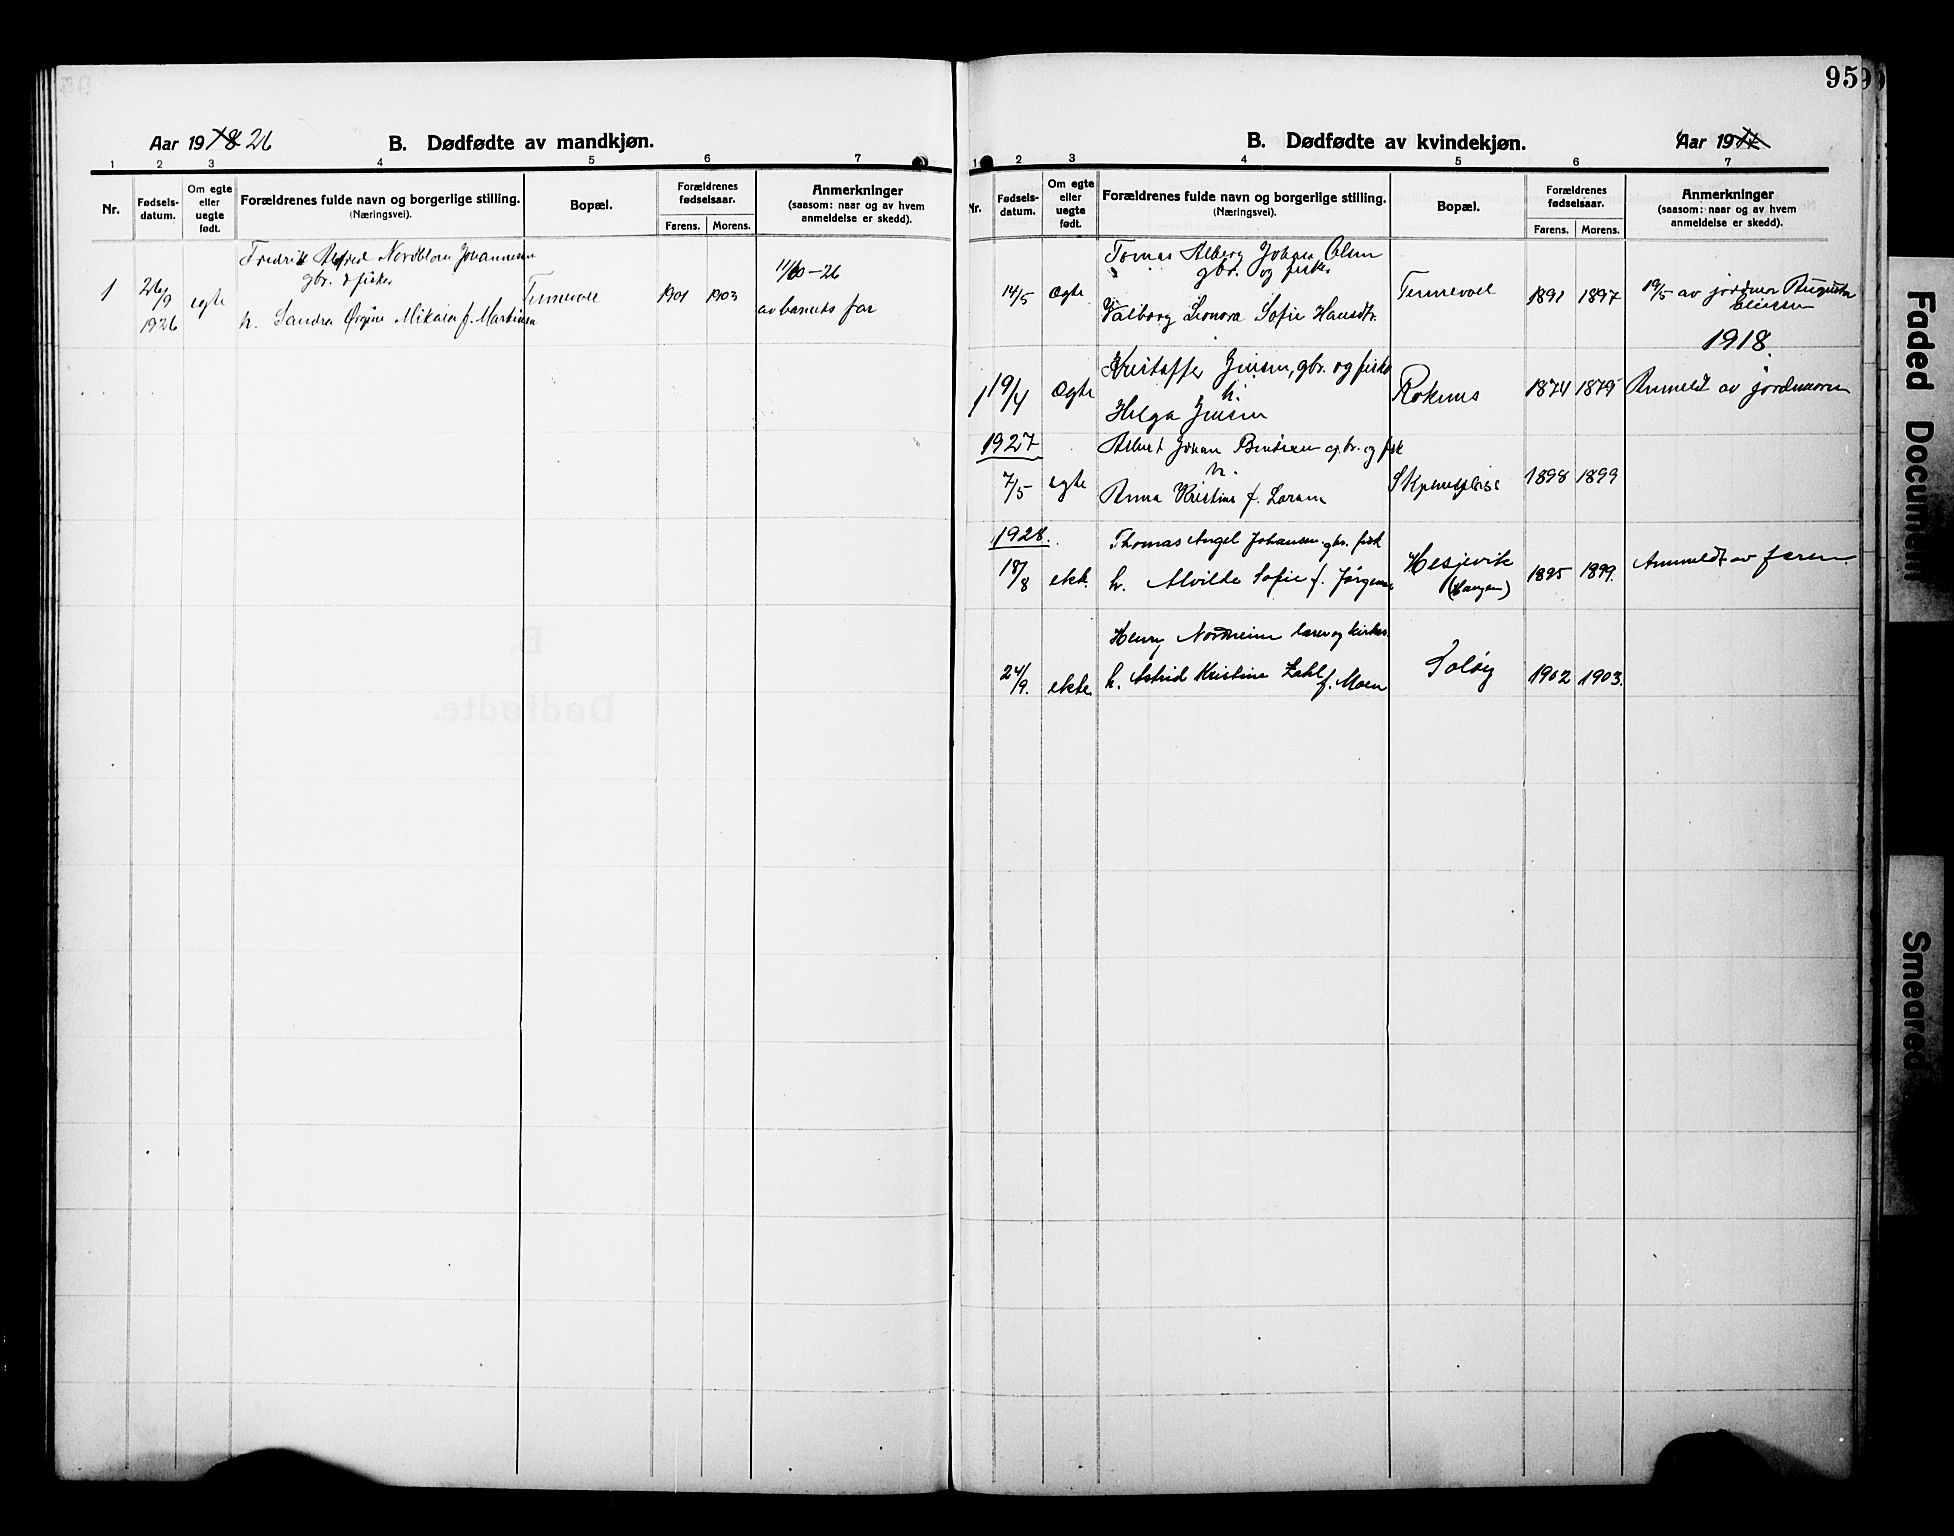 Aar 1918 26
B. Dødfødte av mandkjøn.
1 2 3 4 5 6 7
Nr.
Fødsels-
datum.
Om egte
eller
uegte
født.
Forældrenes fulde navn og borgerlige stilling.
(Næringsvei).
Bopæl.
Forældrenes
fødselsaar.
Farens. Morens.
Anmerkninger
(saasom: naar og av hvem
anmeldelse er skedd).
1
26/9
1926
egte
Fredrik Alfred Nordblom Johannesen
gbr. & fisker
h. Sandra Ovgine Mikaia f. Martinsen
Tennevoll
1901 1903
11/10-26
av barnets far
95
B. Dødfødte av kvindekjøn.
Aar 19
1 2 3 4 5 6 7
Nr.
Fødsels-
datum.
Om egte
eller
uegte
født.
Forældrenes fulde navn og borgerlige stilling.
(Næringsvei).
Bopæl.
Forældrenes
fødselsaar.
Farens. Morens.
Anmerkninger
(saasom: naar og av hvem
anmeldelse er skedd).
14/5
Ægte
Tomas Alberg Johan Olsen
gbr. og fisker
Valborg Leonora Sofie Hansdtr.
Tennevoll
1891 1897
19/5 av jordmor Augusta
1918.
1
19/4
Ægte
Kristoffer Jensen, gbr. og fisker
h.
Helga Jensen
Rokenes
1874 1875
Anmeldt av jordmoren
1927
7/5
egte
Albert Johan Bentsen gbr. og fisk
h.
Anna Kristine f. Larsen
1898 1899
1928.
18/8
ekte.
Thomas Angel Johansen. gbr. fisk
h. Alvilde Sofie f. Jørgensen
Hesjevik
(Haugen)
1895 1899.
Anmeldt av faren.
24/9.
ekte
Henry Nordheim lærer og kirkes.
h. Astrid Kristine Zahl f. Moen
Soløy
1902 1903.
Faded Document
Smeared